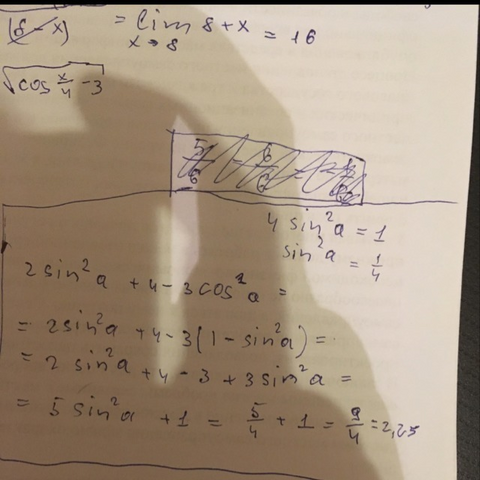 (8 - x) = lim x→8 8 + x = 16
√cos x/4 - 3
4 sin²a = 1
sin²a = 1/4
2 sin²a + 4 - 3 cos²a =
= 2 sin²a + 4 - 3(1 - sin²a) =
= 2 sin²a + 4 - 3 + 3 sin²a =
= 5 sin²a + 1 = 5/4 + 1 = 9/4 = 2,25